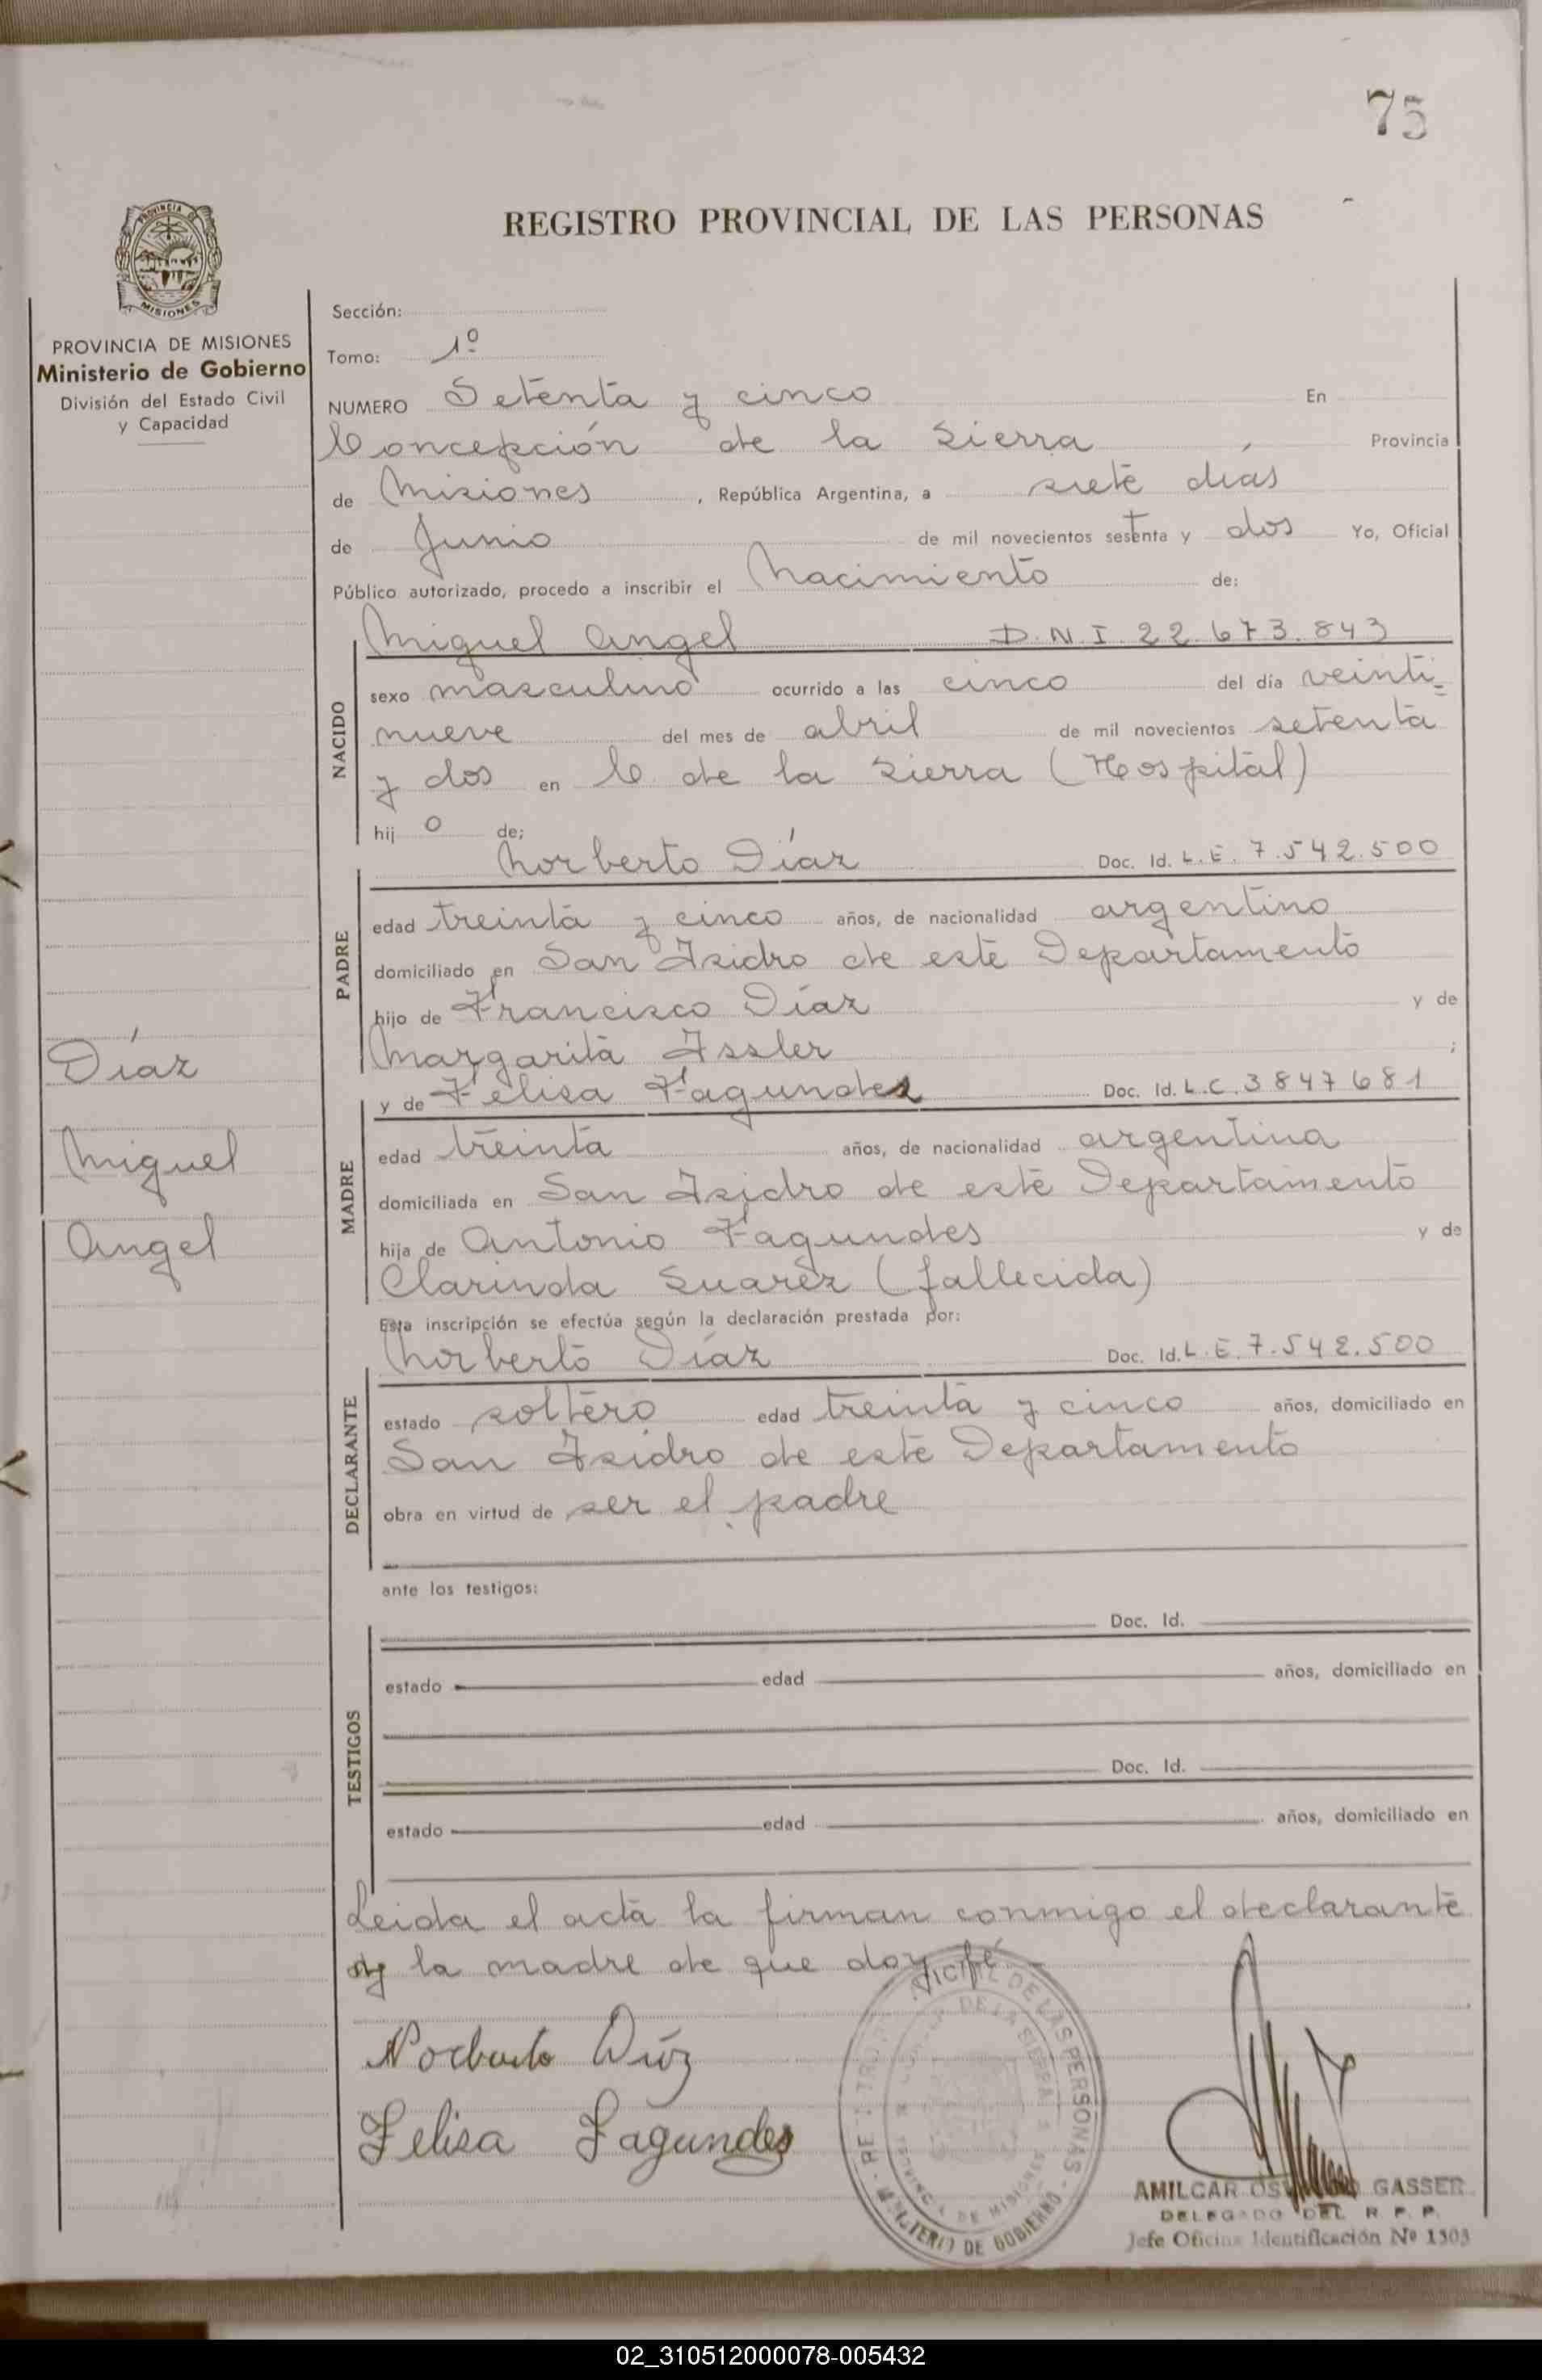 75
PROVINCIA DE
MISIONES
PROVINCIA DE MISIONES
Ministerio de Gobierno
División del Estado Civil
y Capacidad
REGISTRO PROVINCIAL DE LAS PERSONAS
Sección:
Tomo: 1º
NUMERO Setenta y cinco En
Concepción de la Sierra, Provincia
de Misiones, República Argentina, a siete días
de Junio de mil novecientos setenta y dos Yo, Oficial
Público autorizado, procedo a inscribir el Nacimiento de:
NACIDO
Miguel Angel D.N.I. 22.673.843
sexo masculino ocurrido a las cinco del día veinti-
nueve del mes de abril de mil novecientos setenta
y dos en C de la Sierra (Hospital)
hij o de;
PADRE
Norberto Díaz Doc. Id. L.E. 7.542.500
edad treinta y cinco años, de nacionalidad argentino
domiciliado en San Isidro de este Departamento
hijo de Francisco Díaz y de
Margarita Issler ;
MADRE
y de Felisa Fagundes Doc. Id. L.C. 3847681
edad treinta años, de nacionalidad argentina
domiciliada en San Isidro de este Departamento
hija de Antonio Fagundes y de
Clarinda Suarez (fallecida)
Esta inscripción se efectúa según la declaración prestada por:
DECLARANTE
Norberto Díaz Doc. Id. L.E. 7.542.500
estado soltero edad treinta y cinco años, domiciliado en
San Isidro de este Departamento
obra en virtud de ser el padre
ante los testigos:
TESTIGOS
Doc. Id.
estado edad años, domiciliado en
Doc. Id.
estado edad años, domiciliado en
Leida el acta la firman conmigo el declarante
y la madre de que doy fé.
Díaz
Miguel
Angel
Norberto Díaz
Felisa Fagundes
DE LAS PERSONAS
MINISTERIO DE GOBIERNO
DE LA SIERRA
PROVINCIA DE MISIONES
AMILCAR GASSER
DELEGADO DEL R. P. P.
Jefe Oficina Identificación Nº 1503
02_310512000078-005432